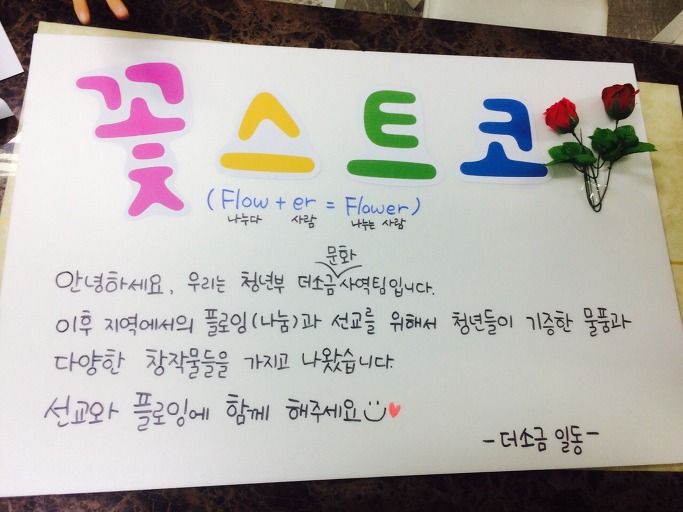 꽃스트코
(Flow + er = Flower)
나누다 사람 나누는 사람
문화
안녕하세요, 우리는 청년부 더소금 사역팀입니다.
이후 지역에서의 플로잉(나눔)과 선교를 위해서 청년들이 기증한 물품과
다양한 창작물들을 가지고 나왔습니다.
선교와 플로잉에 함께 해주세요
- 더소금 일동 -